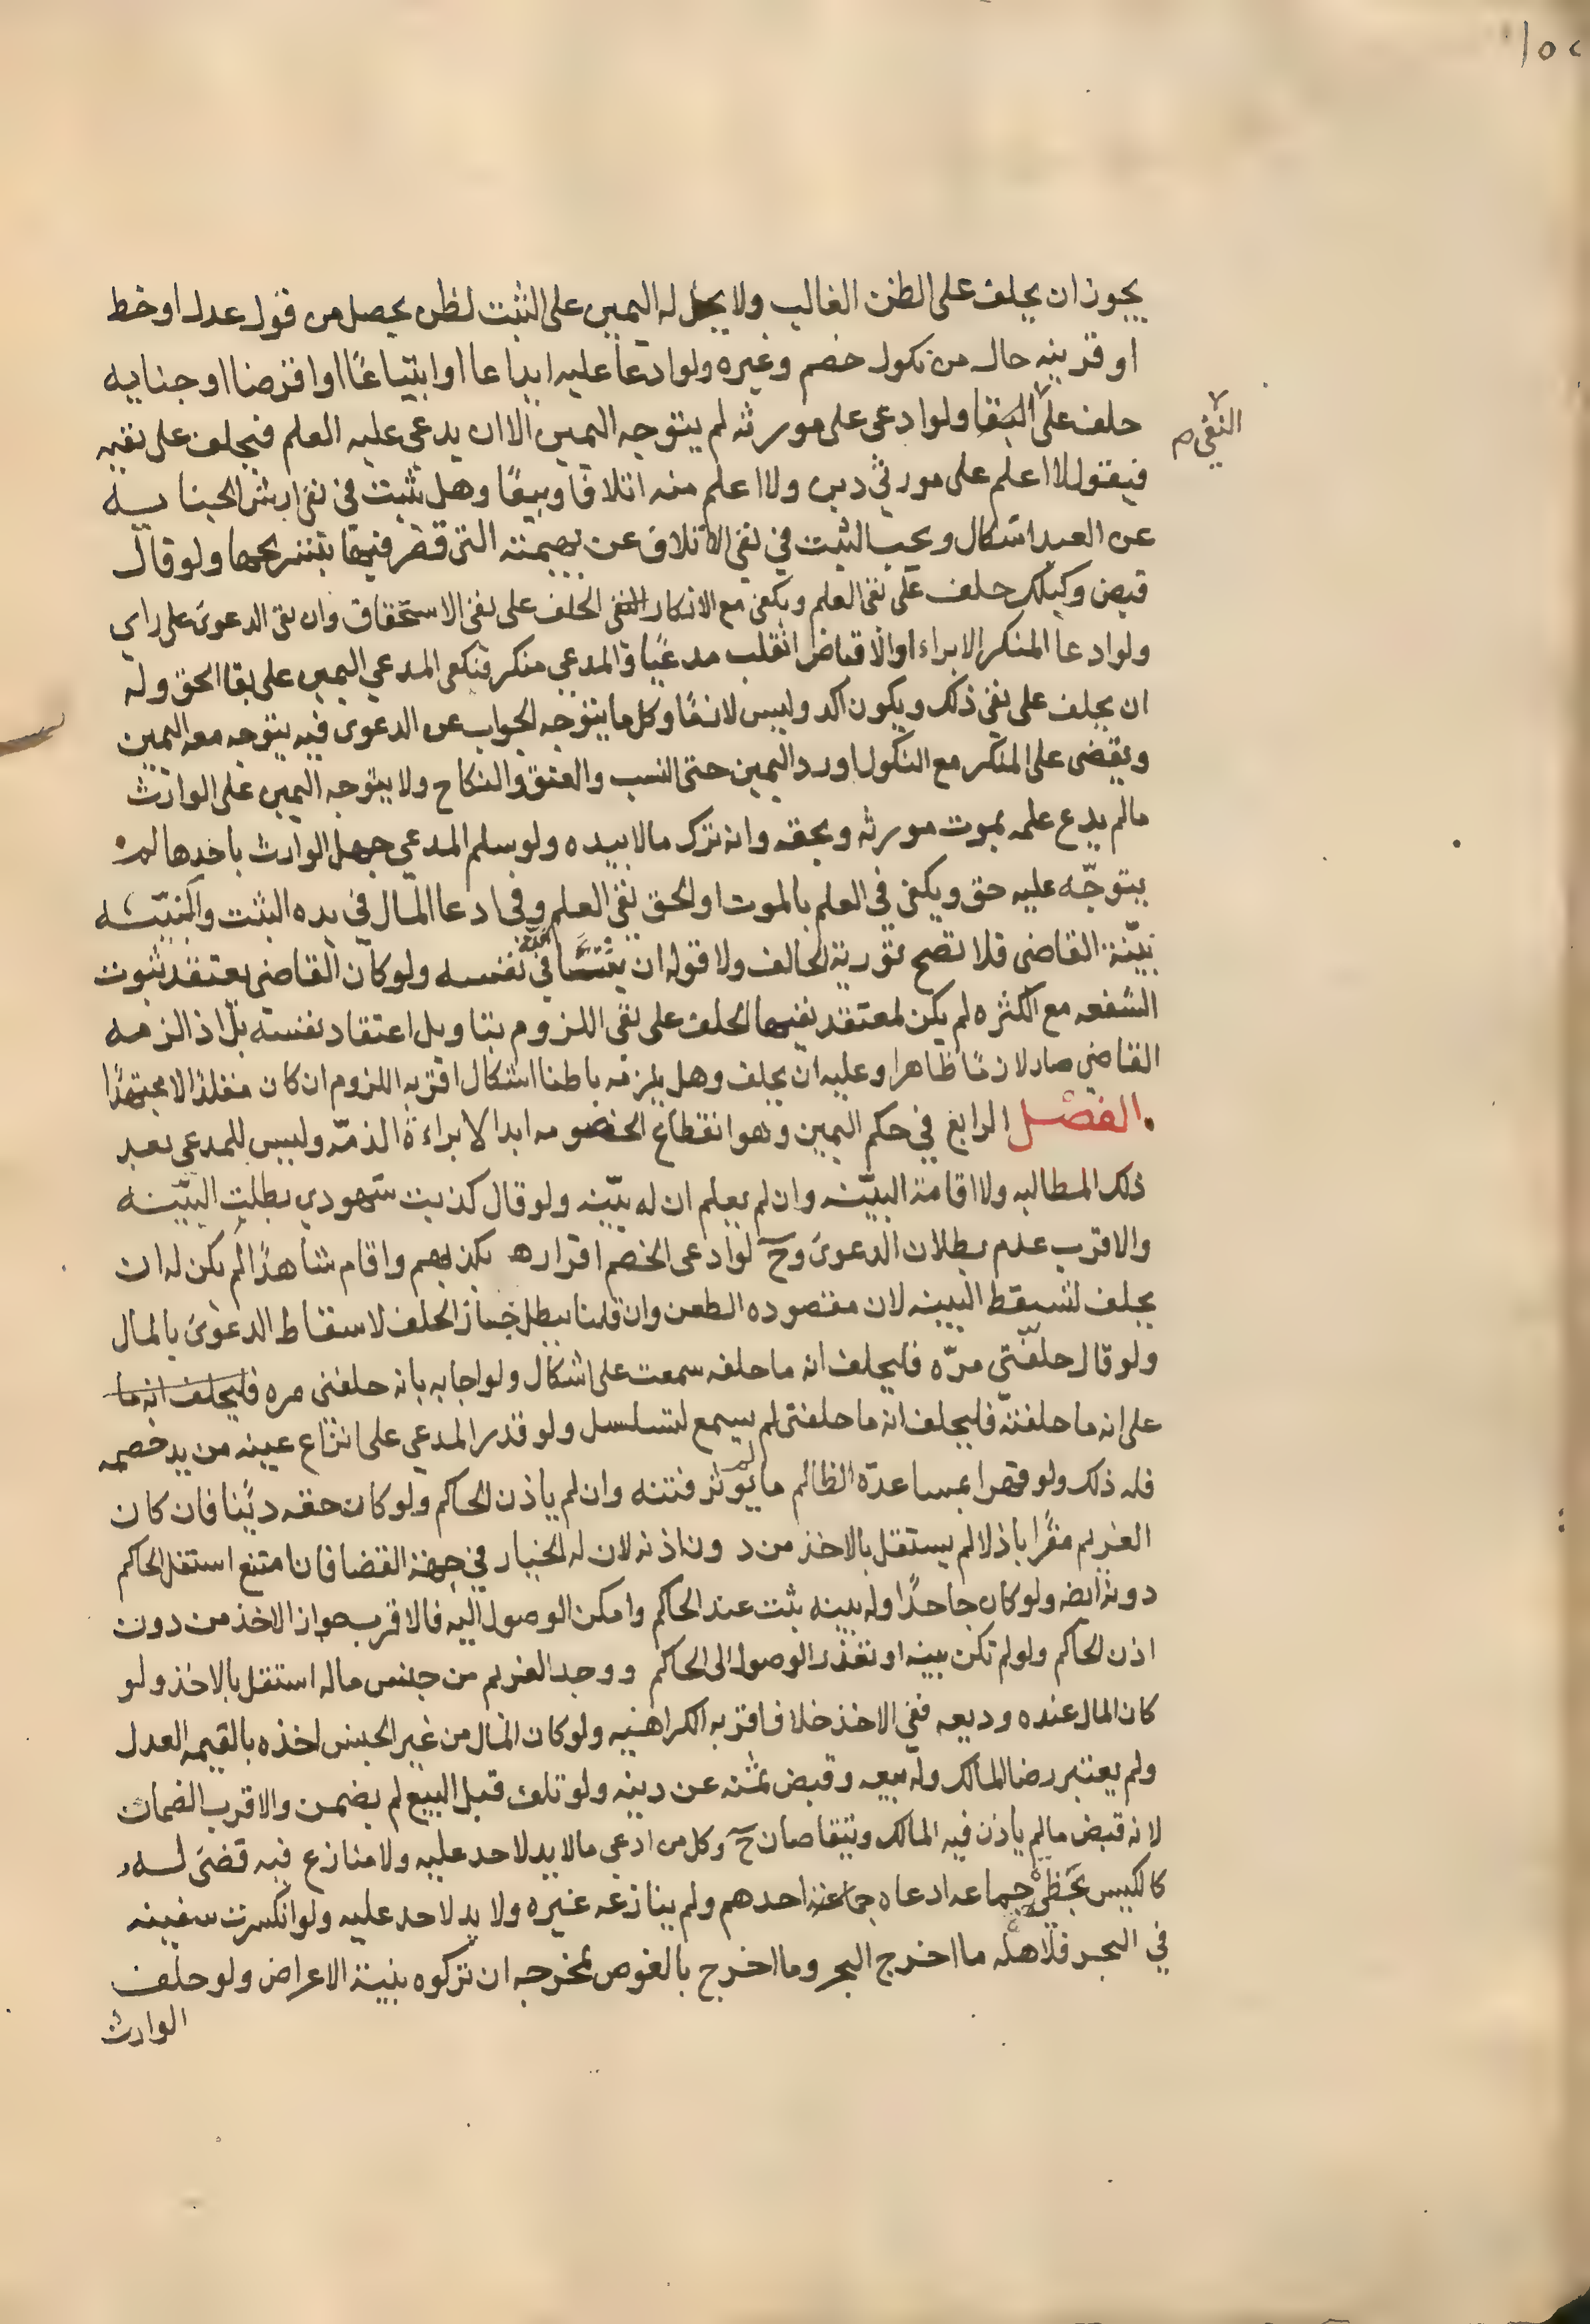 ١٥٢
يجوز ان يحلف على الظن الغالب ولا يحل له اليمين على البت لظن يحصل من قول عدل او خط
او قرينه حال من نكول خصم وغيره ولو ادعا عليه ايداعا او ابتياعًا او اقرضا او جنايه
حلف على البقا ولو ادعى على مورثه لم يتوجه اليمين الا ان يدعي عليه العلم فيحلف على نفيه
النفي م
فيقول لا اعلم على مورثي دين ولا اعلم منه اتلافا وبيعًا وهل يثبت في نفي ارش الجنايه
عن العبد اشكال ويجب البت في نفي الاتلاف عن بهيمته التي قصر فيها بتسريحها ولو قال
قبض وكيلك حلف على نفي العلم ويكفي مع الانكار الحلف على نفي الاستحقاق وان نفي الدعوى على راي
ولو ادعا المنكر الابراء او الاقباض انقلب مدعيًا والمدعي منكر فيكفي المدعي اليمين على بقا الحق وله
ان يحلف على نفي ذلك ويكون اكد وليس لازمًا وكل ما يتوجه الجواب عن الدعوى فيه يتوجه معه اليمين
ويقضى على المنكر مع النكول او رد اليمين حتى النسب والعتق والنكاح ولا يتوجه اليمين على الوارث
مالم يدع علمه بموت مورثه وبحقه وانه ترك مالا بيده ولو سلم المدعي جهل الوارث باحدها لم
يتوجّه عليه حق ويكفي في العلم بالموت او الحق نفي العلم وفي ادعا المال في يده البت والنيّة
نيّة القاضي فلا تصح تورية الحالف ولا قوله ان في نفسه ولو كان القاضي يعتقد ثبوت
الشفعه مع الكثره لم يكن لمعتقد نفيها الحلف على نفي اللزوم بتاويل اعتقاد نفسه بل اذا الزمه
القاضي صار لازمًا ظاهرا وعليه ان يحلف وهل يلزمه باطنا اشكال اقربه اللزوم ان كان مقلدًا لا مجتهدًا
الفصل الرابع في حكم اليمين وهو انقطاع الخصومه ابدا لا براءة الذمّه وليس للمدعي بعد
ذلك المطالبه ولا اقامة البيّنه وان لم يعلم ان له بيّنه ولو قال كذبت شهودي بطلت البيّنه
والاقرب عدم بطلان الدعوى وح لو ادعى الخصم اقراره بكذبهم واقام شاهدًا لم يكن له ان
يحلف لتسقط البينه لان مقصوده الطعن وان قلنا يبطل جاز الحلف لاسقاط الدعوى بالمال
ولو قال حلفّتني مرّه فليحلف انه ما حلفه سمعت على اشكال ولو اجابه بانه حلفني مره فليحلف انه ما
على انه ما حلفته فليحلف انه ما حلفني لم يسمع لتسلسل ولو قدر المدعي على انتزاع عينه من يد خصمه
فله ذلك ولو قهرا بمساعدة الظالم ما لم يوثر فتنه وان لم ياذن الحاكم ولو كان حقه دينًا فان كان
الغريم مقرًا باذلا لم يستقل بالاخذ من دون اذنه لان له الخيار في جهة القضا فان امتنع استقل الحاكم
دونه ايضه ولو كان جاحدًا وله بينه يثبت عند الحاكم وامكن الوصول اليه فالاقرب جواز الاخذ من دون
اذن الحاكم ولو لم تكن بينه او تعذر الوصول الى الحاكم ووجد الغريم من جنس ماله استقل بالاخذ ولو
كان المال عنده وديعه ففي الاخذ خلاف اقربه الكراهيه ولو كان المال من غير الجنس اخذه بالقيمه العدل
ولم يعتبر رضا المالك وله بيعه وقبض ثمنه عن دينه ولو تلف قبل البيع لم يضمن والاقرب الضمان
لانه قبض مالم ياذن فيه المالك ويتقاصان ح وكل من ادعى مالا يد لاحد عليه ولا منازع فيه قضى له
كالكيس بحظي جماعه ادعاه احدهم ولم ينازعه غيره ولا يد لاحد عليه ولو انكسرت سفينه
في البحر فلاهله ما اخرج البحر وما اخرج بالغوص لمخرجه ان تركوه بنية الاعراض ولو حلف
الوارث